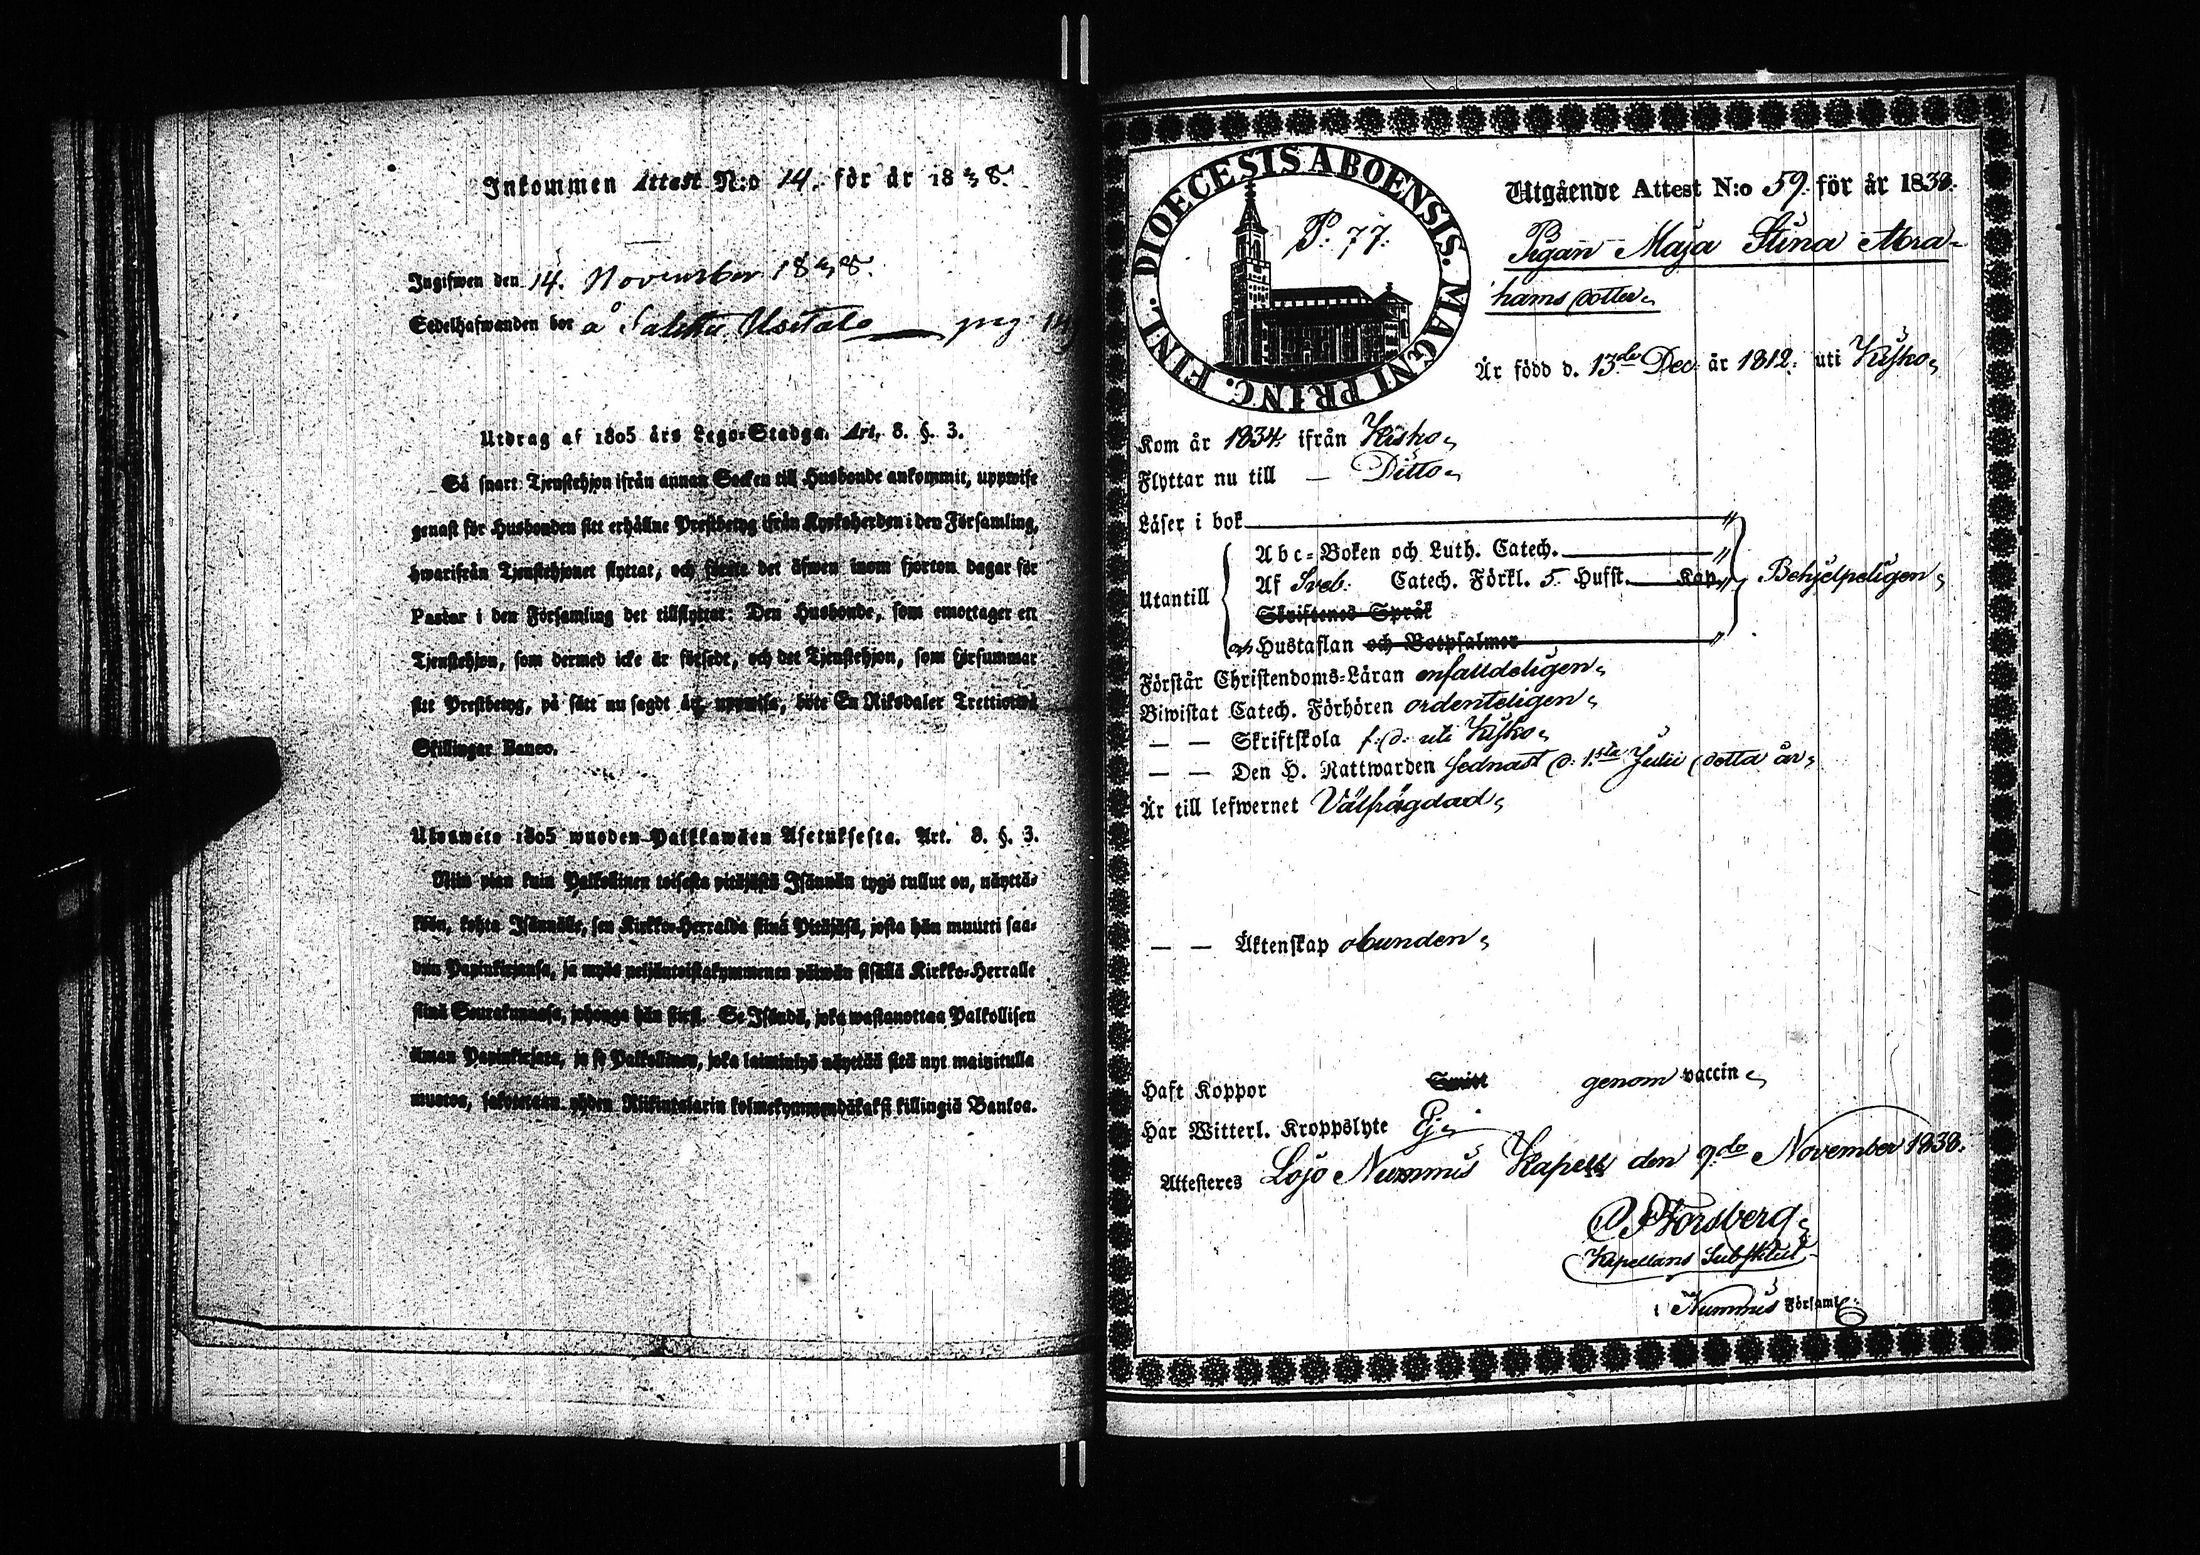 Inkommen Attest N:o 14. för år 1838.
Ingifwen den 14. November 1838.
Sedelhafwanden bor å Usitalo — pag
Utdrag af 1805 års Lego-Stadga. Art. 8. §. 3.
Så snart Tjenstehjon ifrån annan Socken till Husbonde ankommit, uppwise
genast för Husbonden sitt erhållne Prestbetyg ifrån Kyrkoherden i den Församling,
hwarifrån Tjenstehjonet flyttat, och förete det äfwen inom fjorton dagar för
Pastor i den Församling det tillflyttar: Den Husbonde, som emottager ett
Tjenstehjon, som dermed icke är försedt, och det Tjenstehjon, som försummar
sitt Prestbetyg, på sätt nu sagdt är, uppwisa, böte En Riksdaler Trettiotwå
Skillingar Banco.
Ulosweto 1805 wuoden Palkkawäen Asetuksesta. Art. 8. §. 3.
Niin pian kuin Palkollinen toisesta pitäjästä Isännän tygö tullut on, näyttä-
köön, kohta Isännälle, sen Kirkko-Herralda siinä Pitäjäsä, josta hän muutti saa-
dun Papinkirjansa, ja myös neljäntoistakymmenen päiwän sisällä Kirkko-Herralle
siinä Seurakunnasa, johonga hän siirsi. Se Isändä, joka wastanottaa Palkollisen
ilman Papinkirjata, ja se Palkollinen, joka laiminlyö näyttää sitä nyt mainitulla
muotoa, sakotetaan yhden Riikintalarin kolmekymmendäkaksi killingiä Bankoa.
DIOECESIS ABOENSIS. MAGNI PRINC. FINL.
P. 77.
Utgående Attest N:o 59. för år 1838.
Pigan Maja Stina Abra-
hams dotter
Är född d. 13de Dec. år 1812. uti Kisko
Kom år 1834. ifrån Kisko
Flyttar nu till — Ditto
Läser i bok
Abc-Boken och Luth. Catech.
Utantill Af Sveb. Catech. Förkl. 5. Hufst. Kap. Behjelpeligen
Skriftenes Språk
Hustaflan och Botpsalmer
Förstår Christendoms-Läran enfalldeligen
Biwistat Catech. Förhören ordenteligen
— — Skriftskola f. d. uti Kisko
— — Den H. Nattwarden sednast d. 1sta Julii detta år
Är till lefwernet Välfrägdad
— — Äktenskap obunden
Haft Koppor Smitt genom vaccin
Har Witterl. Kroppslyte Ej
Attesteres Lojo Nummis Kapell den 9de November 1838.
Forsberg
Kapellans Substitut
i Nummis Församl.